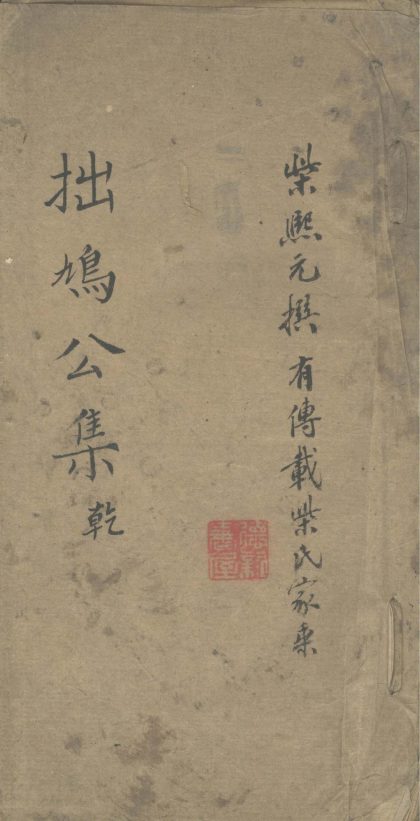 柴熙元撰有傳載柴氏家乘
拙鳩公集乾